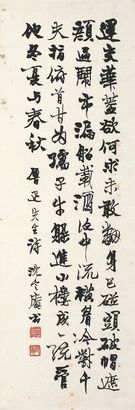 運交華蓋欲何求未敢翻身已碰頭破帽遮
顏過鬧市漏船載酒泛中流橫眉冷對千
夫指俯首甘為孺子牛躲進小樓成一統管
他冬夏与春秋 魯迅先生詩 沈